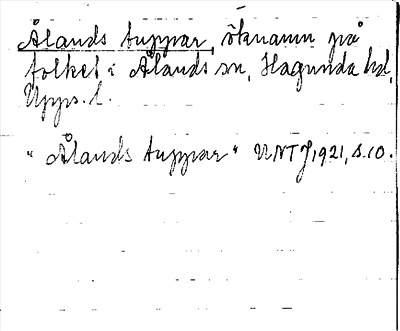 Ålands tuppar, öknamn på
folket i Ålands sn, Hagunda hd,
Upps. l.
"Ålands tuppar" UNTJ, 1921, s. 10.